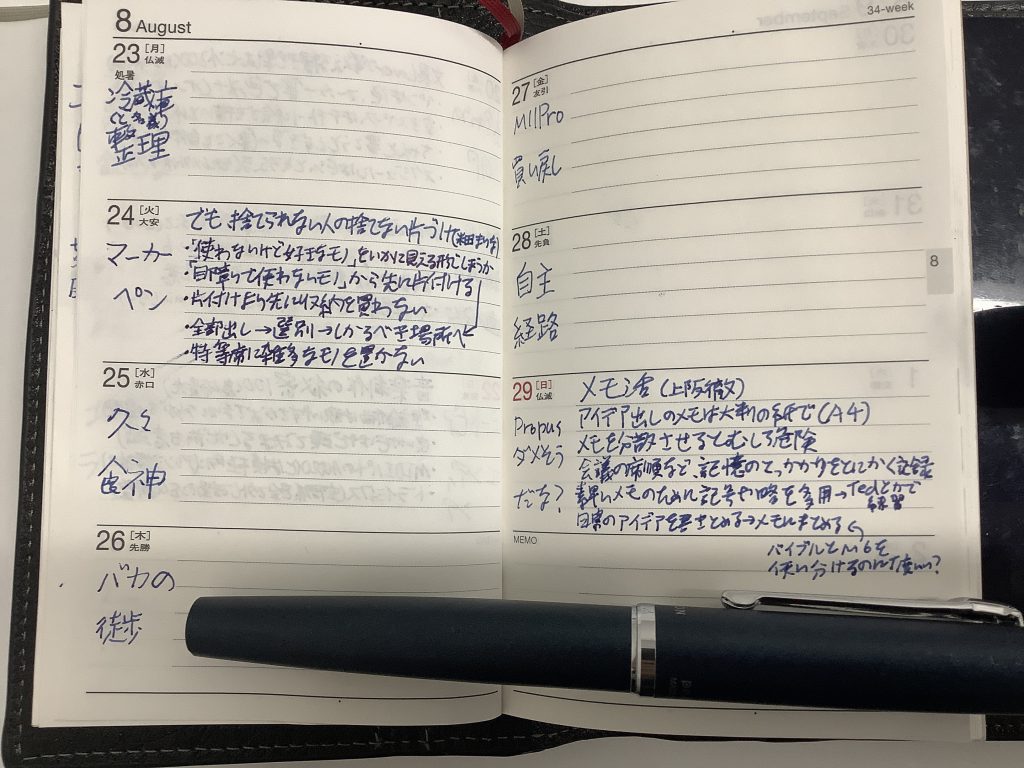 8 August
23 [月] 仏滅
処暑
冷蔵庫
整理
24 [火] 大安
マーカー
ペン
でも捨てられない人の捨てない片づけ
・「使わないけど好きなモノ」をいかに見える所にしまうか
・「目障りで使わないモノ」から先に片付ける
・片付けより先に収納を買わない
・全部出し→選別→しかるべき場所へ
・特等席に雑多なモノを置かない
25 [水] 赤口
久々
食神
26 [木] 先勝
バカの
徒歩
34-week
27 [金] 友引
M11Pro
買い戻し
28 [土] 先負
自主
経路
8
29 [日] 仏滅
Propus
ダメそう
だな?
メモ活(上阪徹)
アイデア出しのメモは大判の紙で(A4)
メモを分散させるとむしろ危険
会議の席順など、記憶のとっかかりをとにかく記録
素早いメモのために記号や略を多用→Tedとかで
練習
日常のアイデアを書きとめる→メモにまとめる
バイブルとM6を
使い分けるのに丁度いい?
MEMO